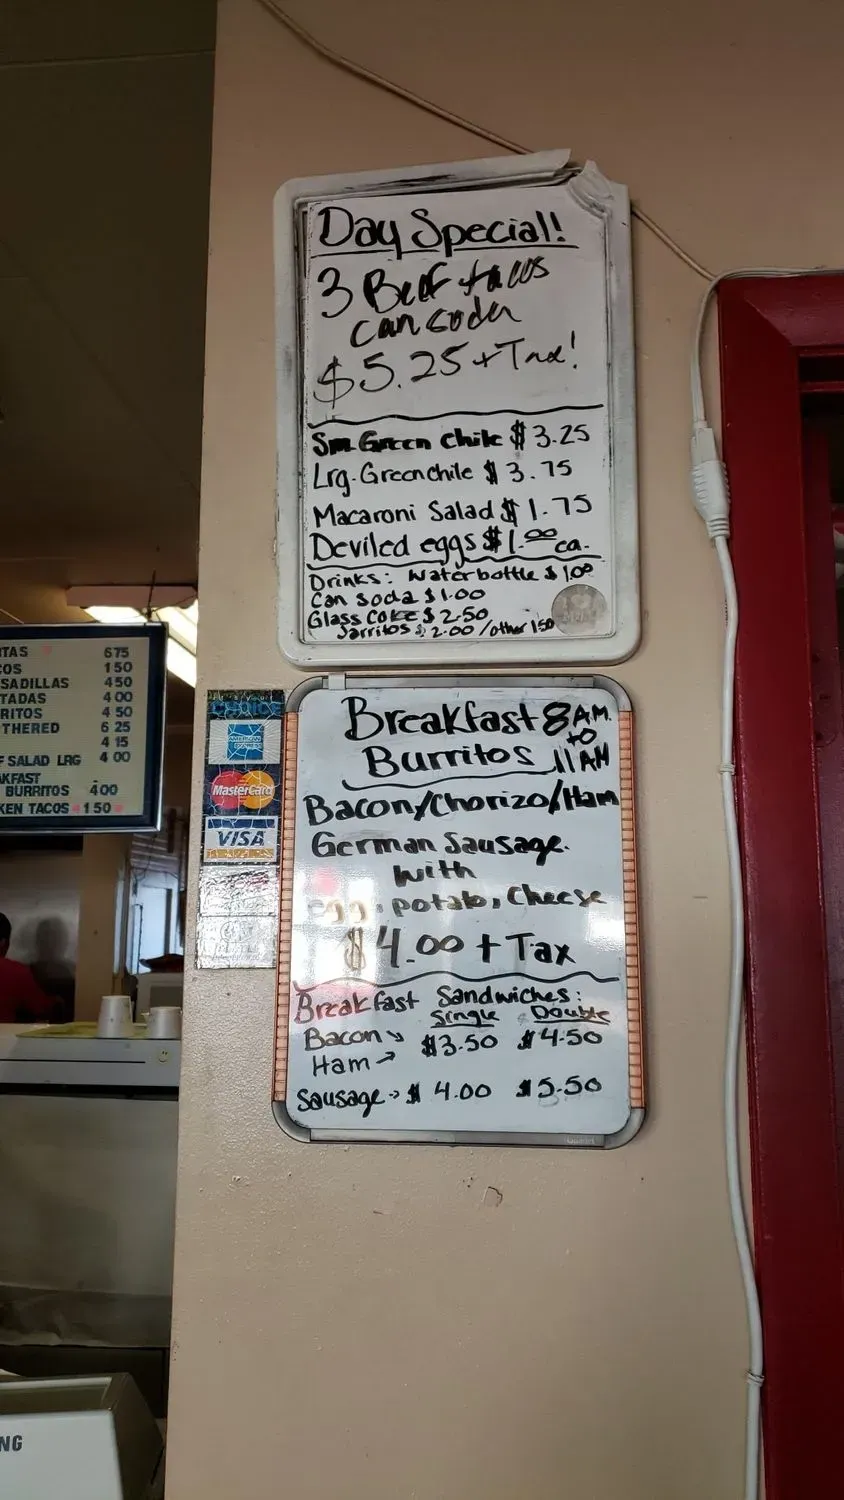 Day Special!
3 Beef tacos
can soda
$5.25 + Tax!
Sm Green chile $3.25
Lrg. Green chile $3.75
Macaroni Salad $1.75
Deviled eggs $1.00 ea.
Drinks: Water bottle $1.00
Can Soda $1.00
Glass Coke $2.50
Jarritos $2.00 / other 1.50
TAS 675
COS 150
SADILLAS 450
TADAS 400
RITOS 450
THERED 625
415
F SALAD LRG 400
AKFAST
BURRITOS 400
KEN TACOS 150
CHOICE
AMERICAN EXPRESS
MasterCard
VISA
Breakfast 8 A.M.
to
Burritos 11 AM
Bacon/Chorizo/Ham
German Sausage.
with
egg, potato, cheese
$4.00 + Tax
Breakfast Sandwiches:
Single Double
Bacon
$3.50 $4.50
Ham →
Sausage → $4.00 $5.50
NG